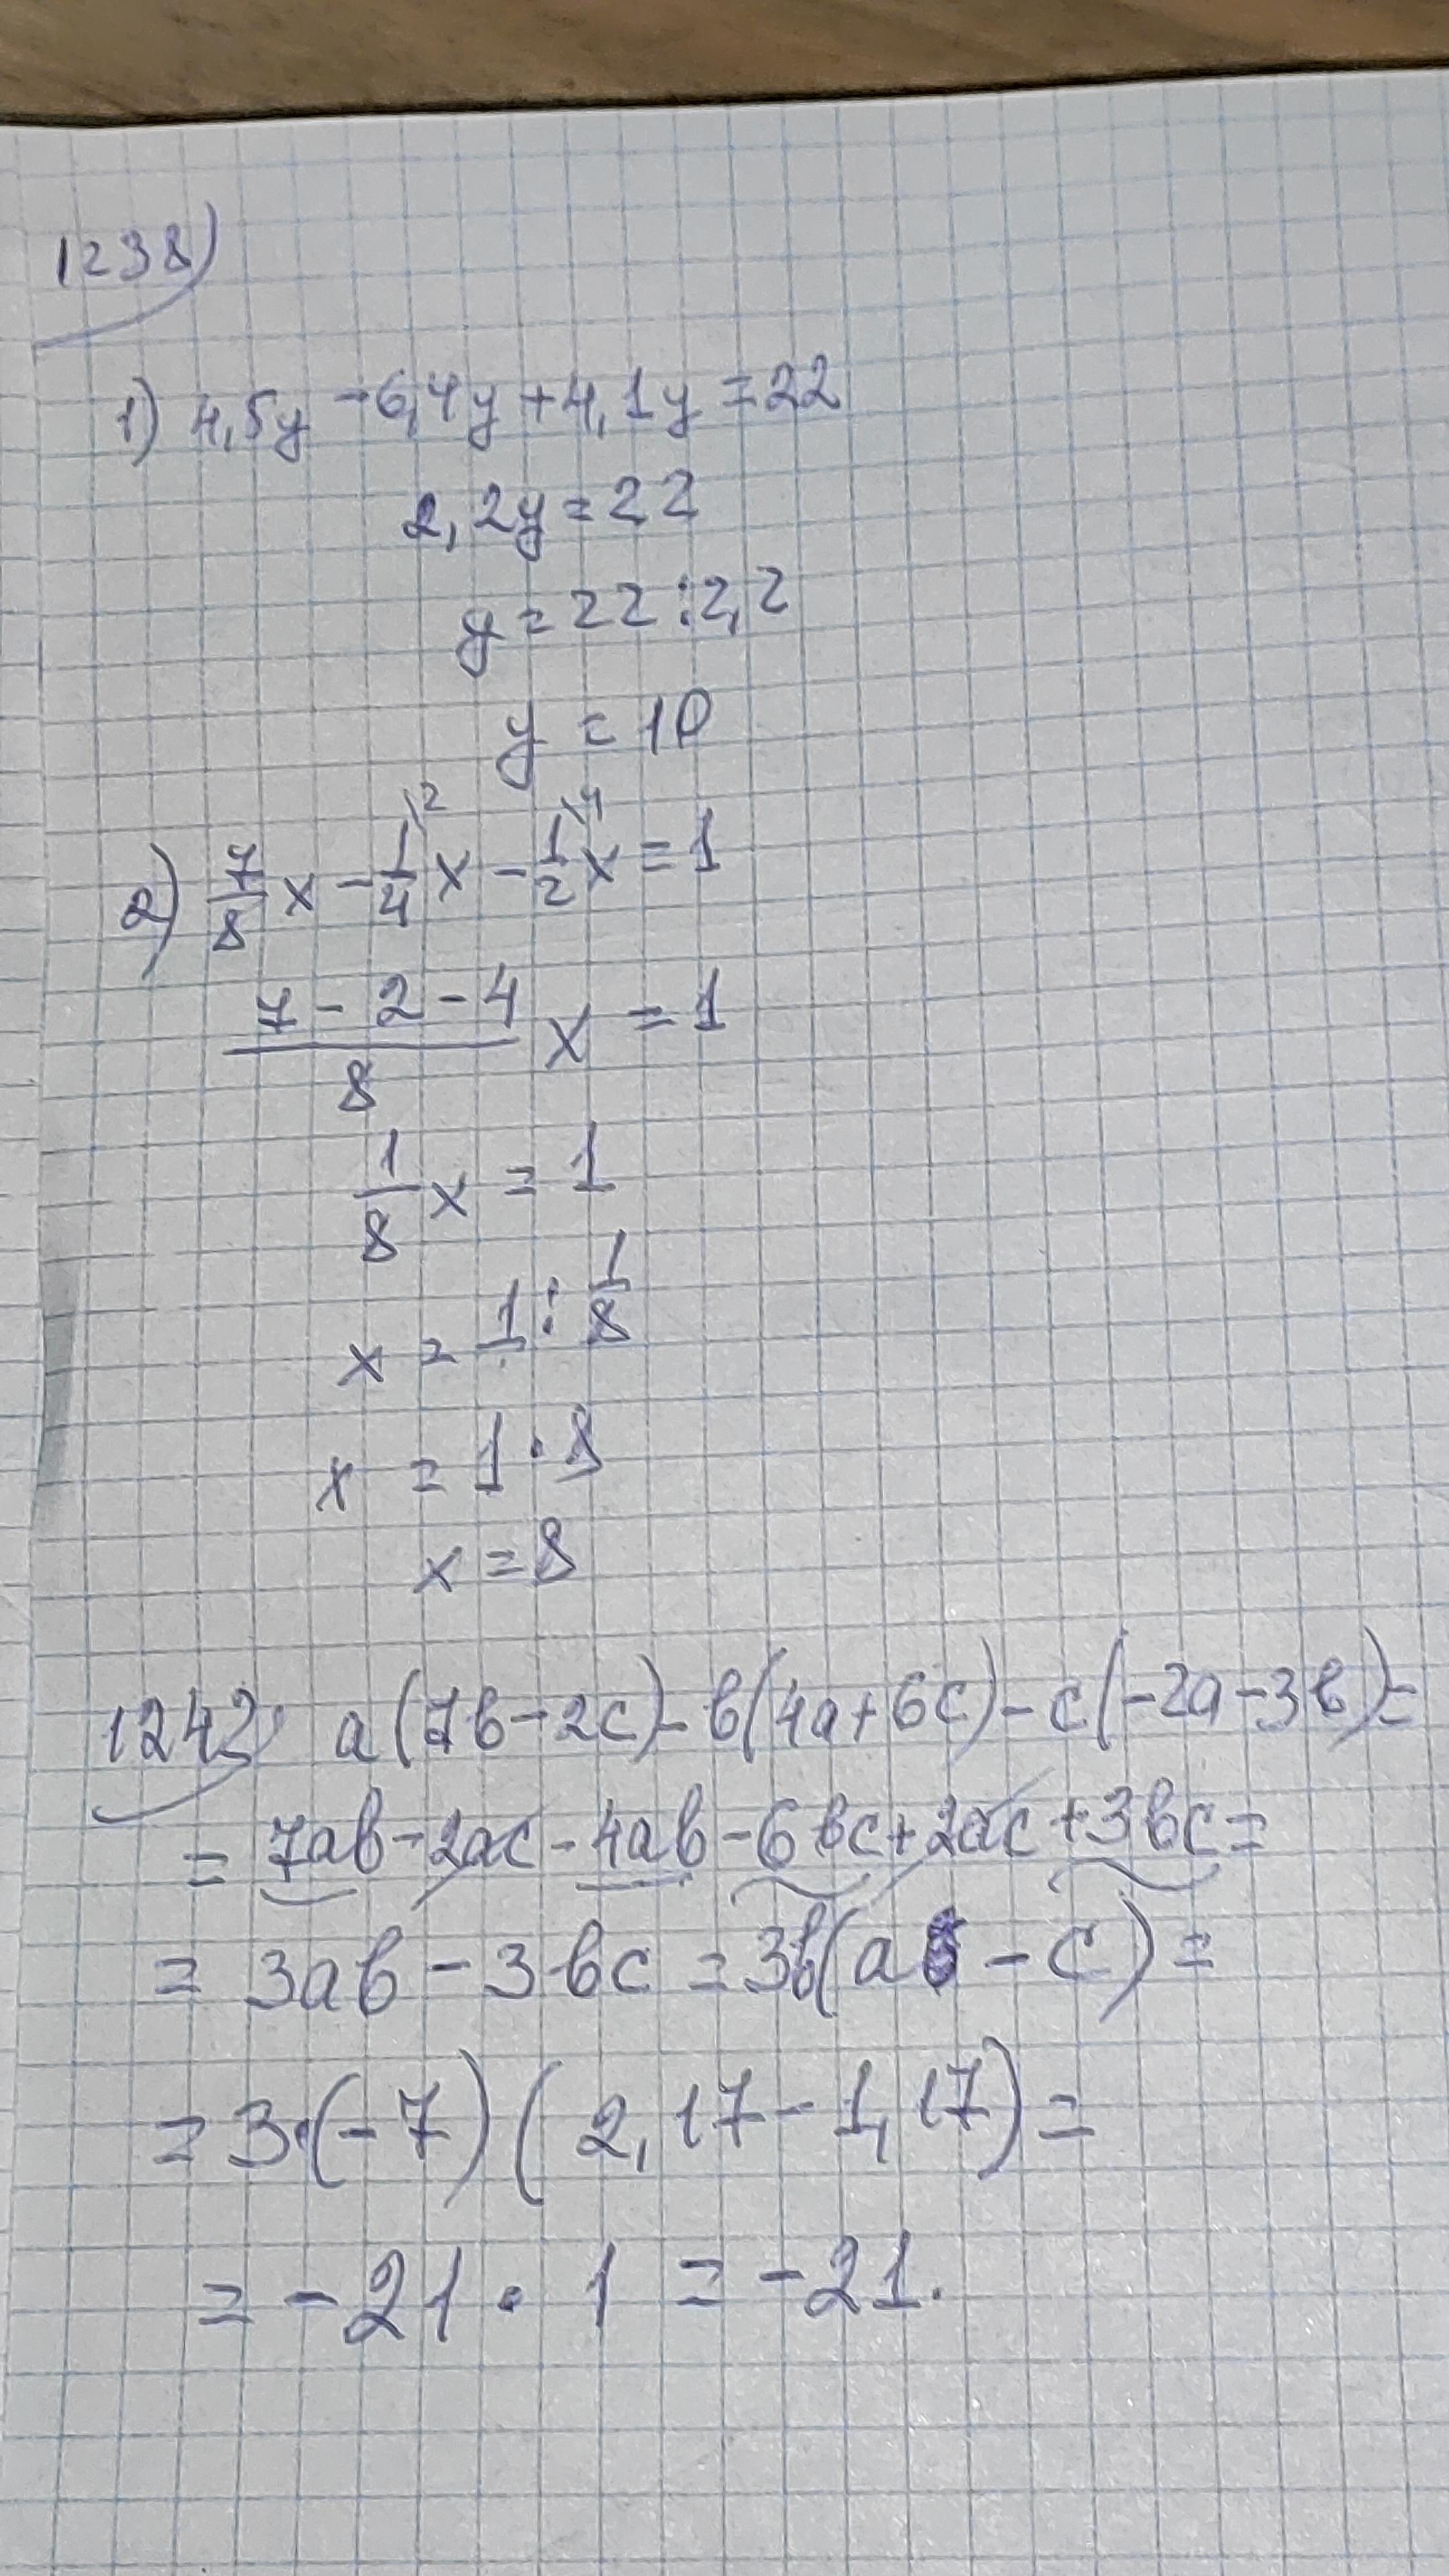 1238)
1) 4,5y - 6,4y + 4,1y = 22
2,2y = 22
y = 22 : 2,2
y = 10
2) 7/8 x - 1/4 \2 x - 1/2 \4 x = 1
(7 - 2 - 4)/8 x = 1
1/8 x = 1
x = 1 : 1/8
x = 1 · 8
x = 8
1242) a(7в - 2c) - в(4a + 6c) - c(-2a - 3в) =
= 7aв - 2ac - 4aв - 6вc + 2ac + 3вc =
= 3aв - 3вc = 3в(a - c) =
= 3·(-7)(2,17 - 1,17) =
= -21 · 1 = -21.